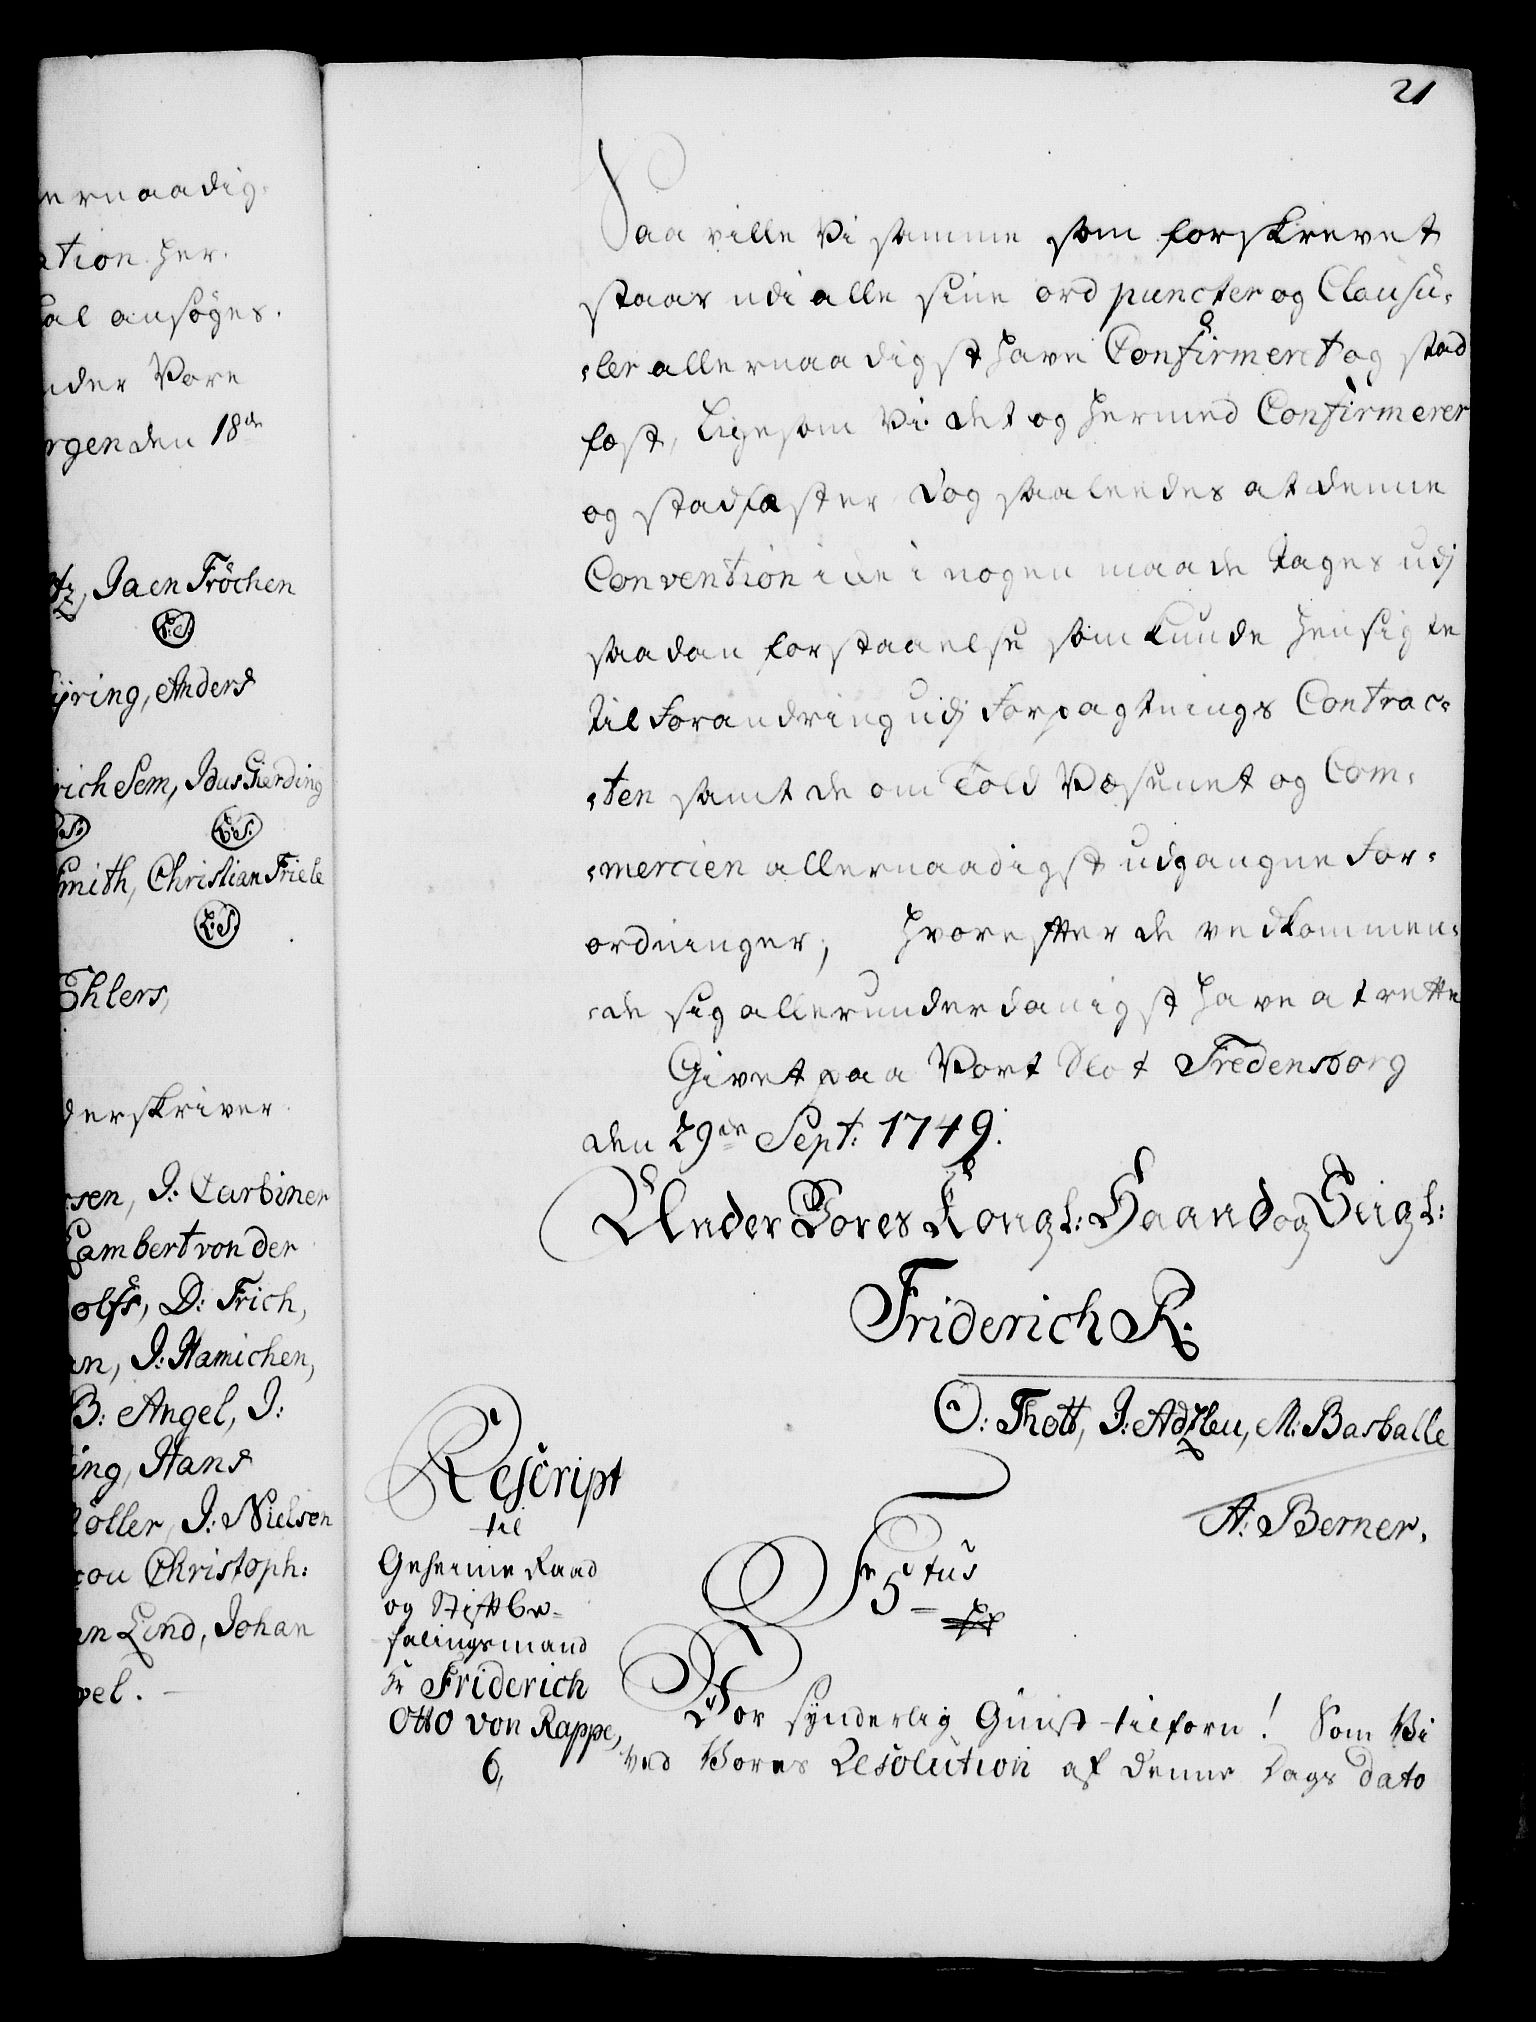 21
ernaadig-
ation her-
al ansøges.
nder Vore
rgen den 18de
tz, Jaen Fröchen
L.S.
yring, Anders
rich Sem, Idus Gierding
L.S.
L.S.
Smith, Christian Friele
L.S.
Ehlers,
derskriver
rsen, J: Carbiner
Lambert von der
olfs, D: Frich,
en, J: Hamichen,
B: Angel, J:
ing, Hans
öller, J: Nielsen
cou Christoph:
an Lind, Johan
vel.
Saa ville Vi samme som forskrevet
staar udi alle sine ord puncter og Clausu-
-ler allernaadigst have Confirmeret og stad
fæst, Ligesom Vi det og hermed Confirmerer
og stadfæster Dog saaledes at denne
Convention icke i nogen maade tages udj
saadan forstaaelse som kunde hensigte
til Forandring udj Forpagtnings Contrac-
-ten samt de om Told Væsenet og Com-
-mercien allernaadigst udgangne For-
ordninger, hvorefter de vedkommen-
-de sig allerunderdanigst have at rette
Givet paa Vort Slot Fredensborg
den 29de Sept: 1749.
Under Vores Kongl: Haand og Sigl:
Friderich R.
O: Thott, J: Adzleu, M: Basballe
A: Berner.
Rescript
til
Geheime Raad
og Stiftbe-
falingsmand
Hr Friderich
Otto von Rappe,
6,
Fr 5tus
Vor synderlig Gunst tilforn! Som Vi
ved Vores Resolution af denne Dags dato